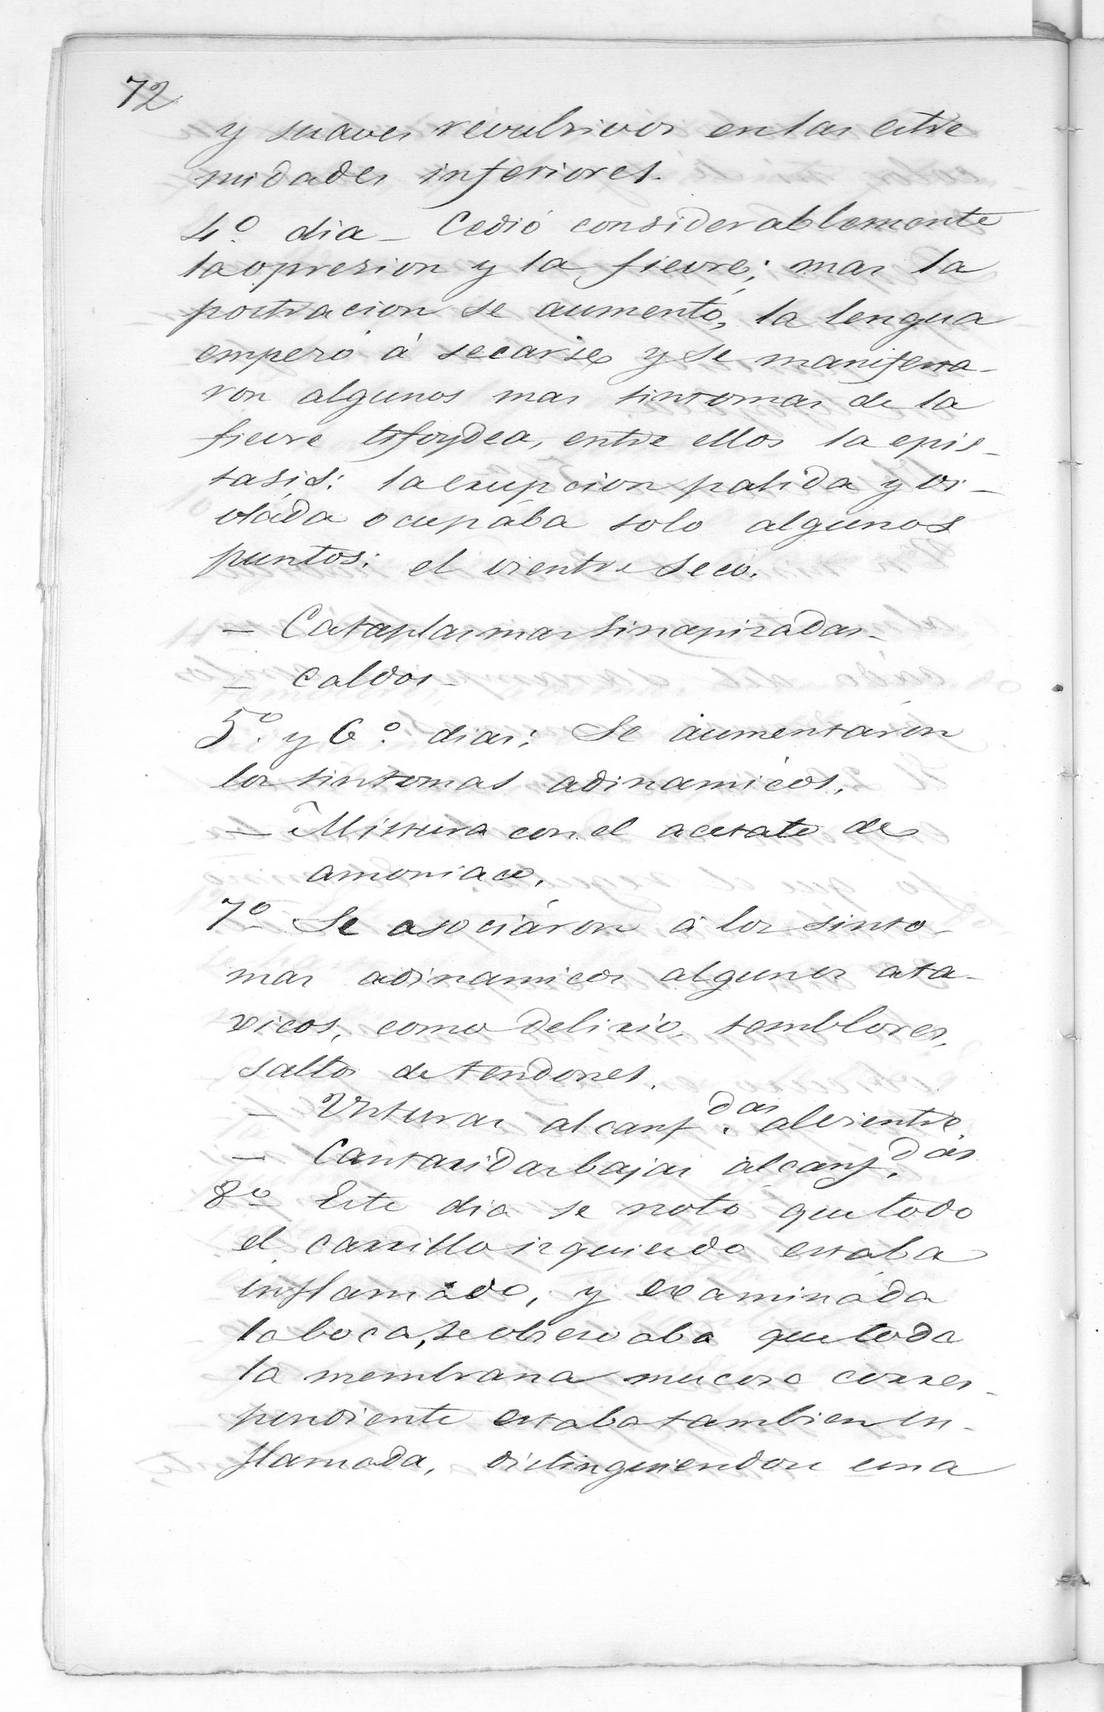 72
y suaves revulsivos en las estre
midades inferiores.
4.º dia - Cedió considerablemente
la opresion y la fievre; mas la
postracion se aumentó, la lengua
empezó á secarse y se manifesta-
ron algunos mas sintomas de la
fievre tifoydea, entre ellos la epis-
tasis: la erupcion palida y vi-
oláda ocupába solo algunos
puntos: el vientre seco.
- Cataplasmas sinapizadas-
- Caldos-
5.º y 6.º dias: Se aumentáron
los sintomas adinamicos.
- Mistura con el acetato de
amoniaco.
7º Se asociáron á los sinto-
mas adinamicos algunos ata-
xicos, como delirio, temblores,
saltos de tendones.
- Unturas alcanf.das al vientre
- Cantaridas bajas alcanf.das
8º Este dia se notó que todo
el carrillo izquierdo estaba
inflamádo, y examináda
la boca, se observaba que toda
la membrana mucosa corres-
pondiente estaba tambien in-
flamada, distinguiendose una